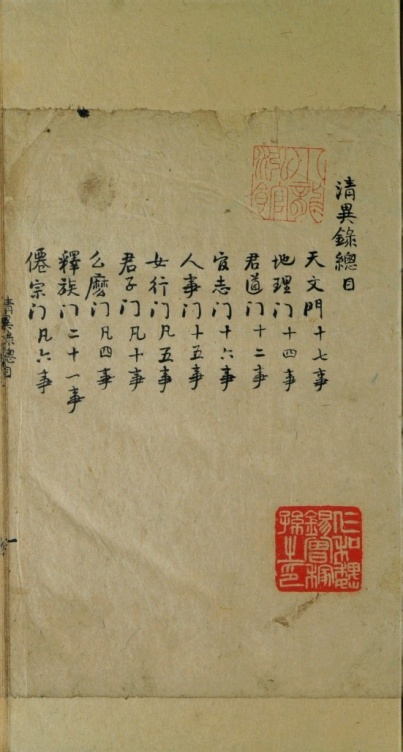 清異錄總目
天文門十七事
地理门十四事
君道门十二事
官志门十六事
人事门十五事
女行门凡五事
君子门凡十事
么麽门凡四事
釋族门二十一事
僊宗门凡六事
仁和魏
錫曾稼
孫之印
清異錄總目